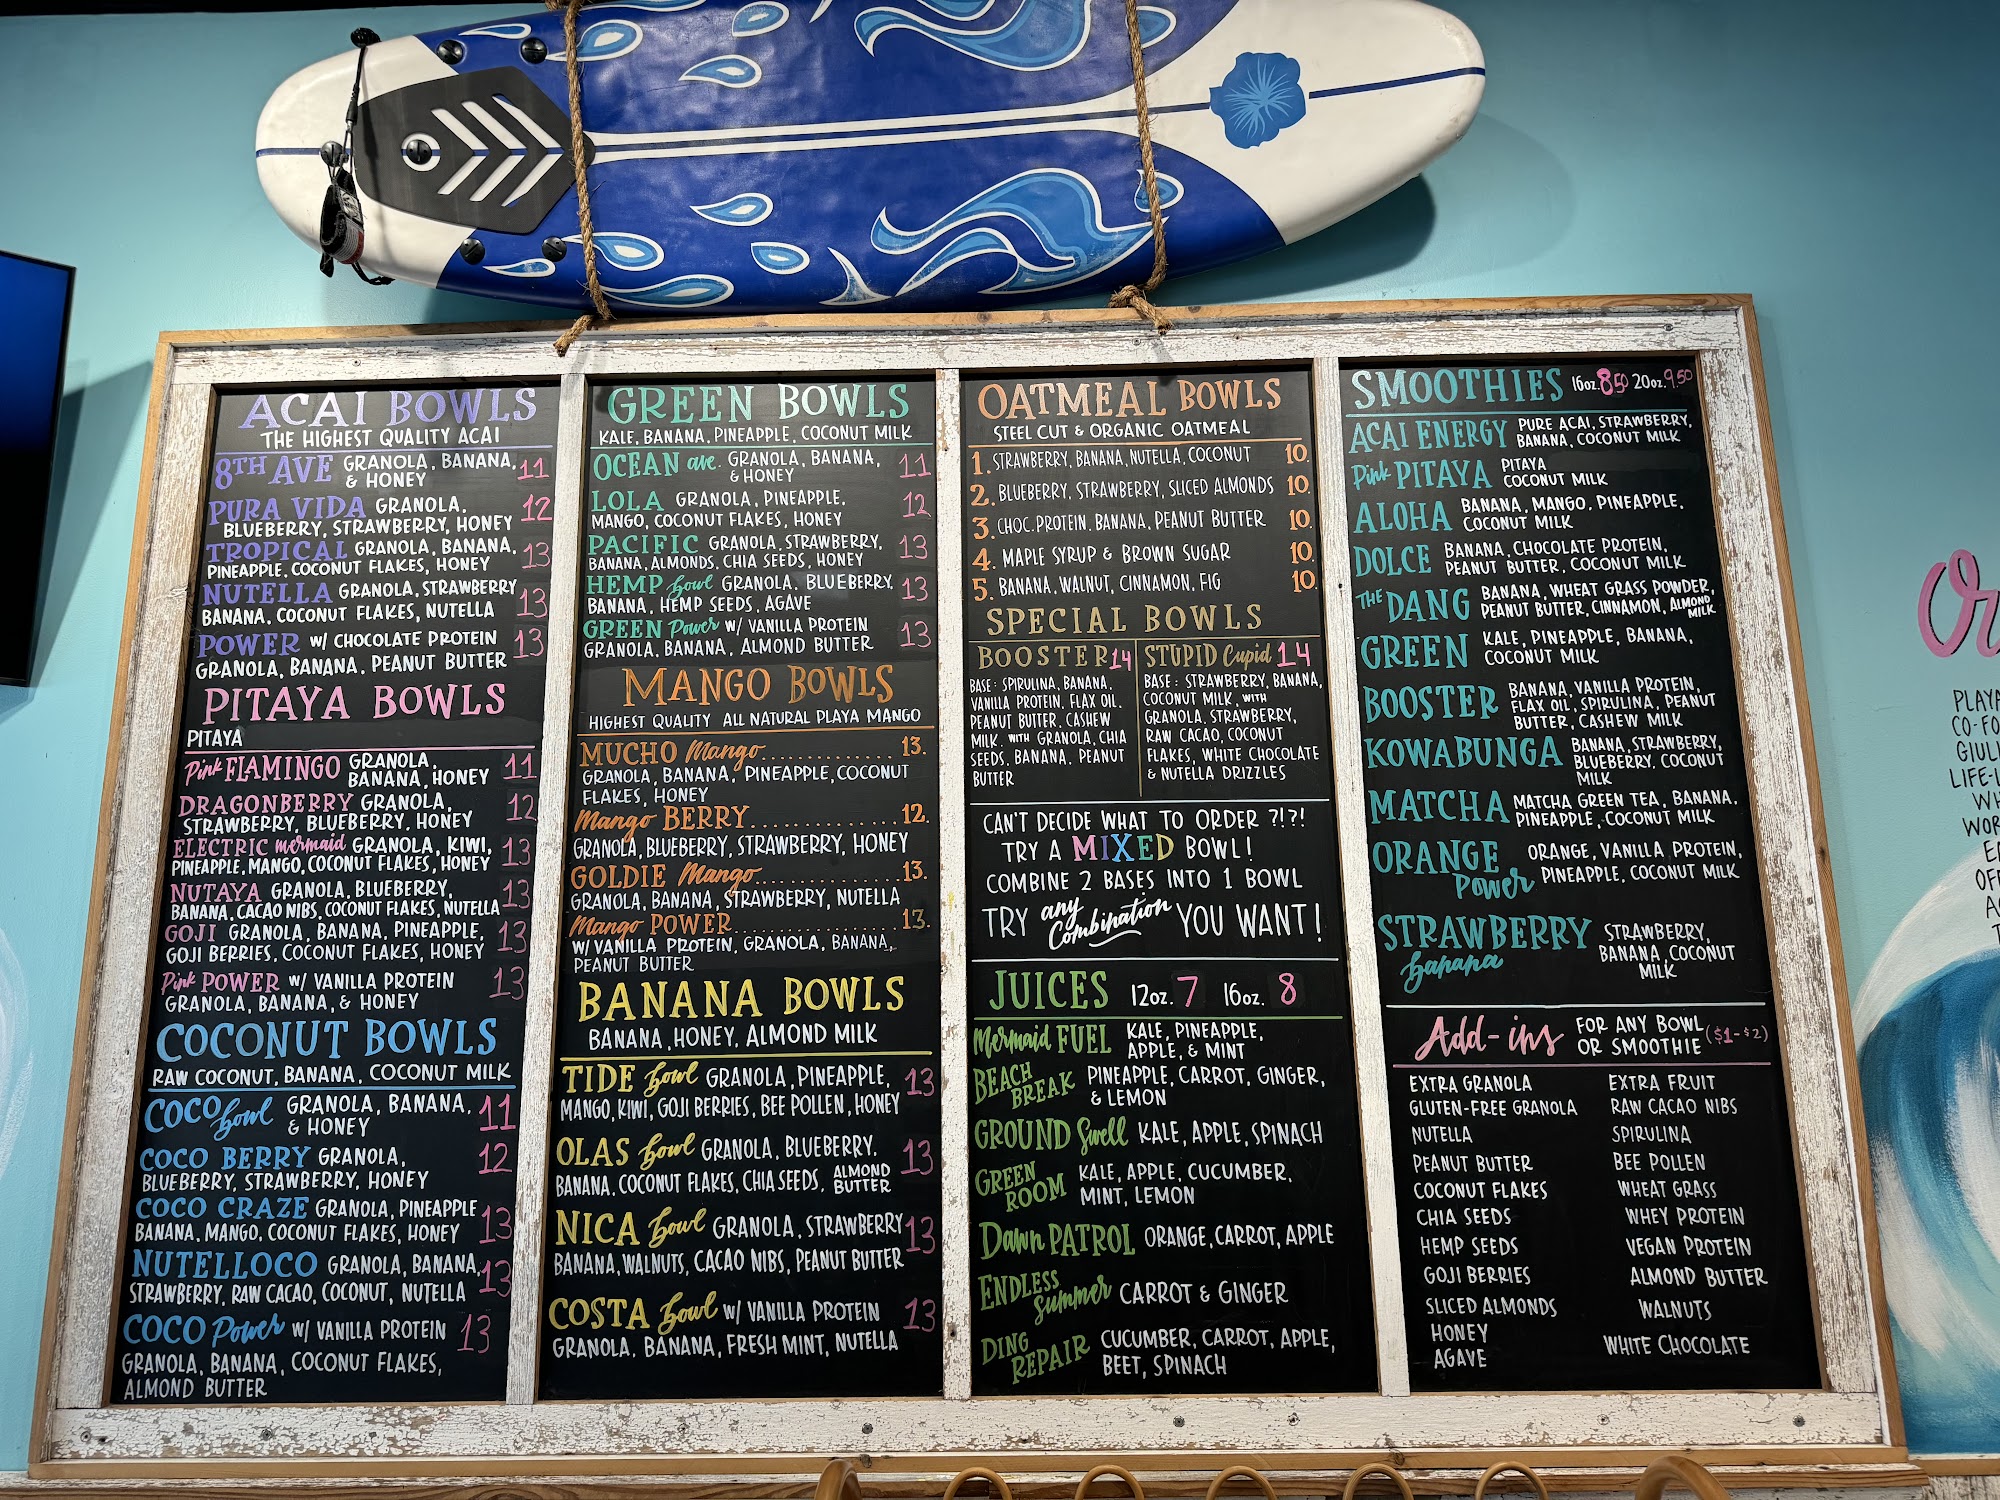 ACAI BOWLS
THE HIGHEST QUALITY ACAI
8TH AVE GRANOLA, BANANA, & HONEY 11
PURA VIDA GRANOLA, 12
BLUEBERRY, STRAWBERRY, HONEY
TROPICAL GRANOLA, BANANA, 13
PINEAPPLE, COCONUT FLAKES, HONEY
NUTELLA GRANOLA, STRAWBERRY 13
BANANA, COCONUT FLAKES, NUTELLA
POWER W/ CHOCOLATE PROTEIN 13
GRANOLA, BANANA, PEANUT BUTTER
PITAYA BOWLS
PITAYA
Pink FLAMINGO GRANOLA, 11
BANANA, HONEY
DRAGONBERRY GRANOLA, 12
STRAWBERRY, BLUEBERRY, HONEY
ELECTRIC mermaid GRANOLA, KIWI, 13
PINEAPPLE, MANGO, COCONUT FLAKES, HONEY
NUTAYA GRANOLA, BLUEBERRY, 13
BANANA, CACAO NIBS, COCONUT FLAKES, NUTELLA
GOJI GRANOLA, BANANA, PINEAPPLE, 13
GOJI BERRIES, COCONUT FLAKES, HONEY
Pink POWER W/ VANILLA PROTEIN 13
GRANOLA, BANANA, & HONEY
COCONUT BOWLS
RAW COCONUT, BANANA, COCONUT MILK
COCO bowl GRANOLA, BANANA, 11
& HONEY
COCO BERRY GRANOLA, 12
BLUEBERRY, STRAWBERRY, HONEY
COCO CRAZE GRANOLA, PINEAPPLE 13
BANANA, MANGO, COCONUT FLAKES, HONEY
NUTELLOCO GRANOLA, BANANA, 13
STRAWBERRY, RAW CACAO, COCONUT, NUTELLA
COCO Power W/ VANILLA PROTEIN 13
GRANOLA, BANANA, COCONUT FLAKES,
ALMOND BUTTER
GREEN BOWLS
KALE, BANANA, PINEAPPLE, COCONUT MILK
OCEAN ave. GRANOLA, BANANA, 11
& HONEY
LOLA GRANOLA, PINEAPPLE, 12
MANGO, COCONUT FLAKES, HONEY
PACIFIC GRANOLA, STRAWBERRY, 13
BANANA, ALMONDS, CHIA SEEDS, HONEY
HEMP bowl GRANOLA, BLUEBERRY, 13
BANANA, HEMP SEEDS, AGAVE
GREEN Power W/ VANILLA PROTEIN 13
GRANOLA, BANANA, ALMOND BUTTER
MANGO BOWLS
HIGHEST QUALITY ALL NATURAL PLAYA MANGO
MUCHO Mango............... 13.
GRANOLA, BANANA, PINEAPPLE, COCONUT
FLAKES, HONEY
Mango BERRY............... 12.
GRANOLA, BLUEBERRY, STRAWBERRY, HONEY
GOLDIE Mango............... 13.
GRANOLA, BANANA, STRAWBERRY, NUTELLA
Mango POWER............... 13.
W/ VANILLA PROTEIN, GRANOLA, BANANA,
PEANUT BUTTER
BANANA BOWLS
BANANA, HONEY, ALMOND MILK
TIDE bowl GRANOLA, PINEAPPLE, 13
MANGO, KIWI, GOJI BERRIES, BEE POLLEN, HONEY
OLAS bowl GRANOLA, BLUEBERRY, 13
BANANA, COCONUT FLAKES, CHIA SEEDS, ALMOND BUTTER
NICA bowl GRANOLA, STRAWBERRY 13
BANANA, WALNUTS, CACAO NIBS, PEANUT BUTTER
COSTA bowl W/ VANILLA PROTEIN 13
GRANOLA, BANANA, FRESH MINT, NUTELLA
OATMEAL BOWLS
STEEL CUT & ORGANIC OATMEAL
1. STRAWBERRY, BANANA, NUTELLA, COCONUT 10.
2. BLUEBERRY, STRAWBERRY, SLICED ALMONDS 10.
3. CHOC. PROTEIN, BANANA, PEANUT BUTTER 10.
4. MAPLE SYRUP & BROWN SUGAR 10.
5. BANANA, WALNUT, CINNAMON, FIG 10.
SPECIAL BOWLS
BOOSTER 14
BASE: SPIRULINA, BANANA,
VANILLA PROTEIN, FLAX OIL,
PEANUT BUTTER, CASHEW
MILK. WITH GRANOLA, CHIA
SEEDS, BANANA, PEANUT
BUTTER
STUPID Cupid 14
BASE: STRAWBERRY, BANANA,
COCONUT MILK, WITH
GRANOLA, STRAWBERRY,
RAW CACAO, COCONUT
FLAKES, WHITE CHOCOLATE
& NUTELLA DRIZZLES
CAN'T DECIDE WHAT TO ORDER ?!?!
TRY A MIXED BOWL!
COMBINE 2 BASES INTO 1 BOWL
TRY any Combination YOU WANT!
JUICES 12oz. 7 16oz. 8
Mermaid FUEL KALE, PINEAPPLE,
APPLE, & MINT
BEACH BREAK PINEAPPLE, CARROT, GINGER,
& LEMON
GROUND Swell KALE, APPLE, SPINACH
GREEN ROOM KALE, APPLE, CUCUMBER,
MINT, LEMON
Dawn PATROL ORANGE, CARROT, APPLE
ENDLESS Summer CARROT & GINGER
DING REPAIR CUCUMBER, CARROT, APPLE,
BEET, SPINACH
SMOOTHIES 16oz. 8.50 20oz. 9.50
ACAI ENERGY PURE ACAI, STRAWBERRY,
BANANA, COCONUT MILK
Pink PITAYA PITAYA
COCONUT MILK
ALOHA BANANA, MANGO, PINEAPPLE,
COCONUT MILK
DOLCE BANANA, CHOCOLATE PROTEIN,
PEANUT BUTTER, COCONUT MILK
THE DANG BANANA, WHEAT GRASS POWDER,
PEANUT BUTTER, CINNAMON, ALMOND MILK
GREEN KALE, PINEAPPLE, BANANA,
COCONUT MILK
BOOSTER BANANA, VANILLA PROTEIN,
FLAX OIL, SPIRULINA, PEANUT
BUTTER, CASHEW MILK
KOWABUNGA BANANA, STRAWBERRY,
BLUEBERRY, COCONUT
MILK
MATCHA MATCHA GREEN TEA, BANANA,
PINEAPPLE, COCONUT MILK
ORANGE Power ORANGE, VANILLA PROTEIN,
PINEAPPLE, COCONUT MILK
STRAWBERRY banana STRAWBERRY,
BANANA, COCONUT
MILK
Add-ins FOR ANY BOWL
OR SMOOTHIE ($1-$2)
EXTRA GRANOLA
GLUTEN-FREE GRANOLA
NUTELLA
PEANUT BUTTER
COCONUT FLAKES
CHIA SEEDS
HEMP SEEDS
GOJI BERRIES
SLICED ALMONDS
HONEY
AGAVE
EXTRA FRUIT
RAW CACAO NIBS
SPIRULINA
BEE POLLEN
WHEAT GRASS
WHEY PROTEIN
VEGAN PROTEIN
ALMOND BUTTER
WALNUTS
WHITE CHOCOLATE